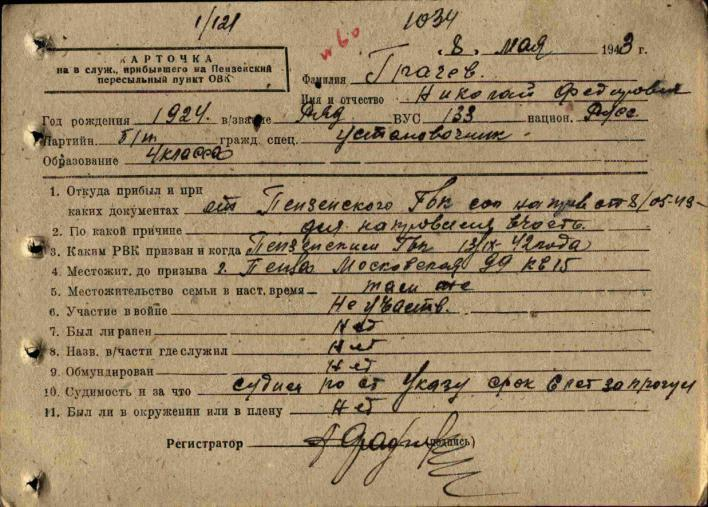 1/121 1034
8. мая 1943 г.
КАРТОЧКА
на в служ., прибывшего на Пензейский
пересыльный пункт ОВК
Фамилия Грачев.
Имя и отчество Николай Федорович
Год рождения 1924. в/звание Ряд ВУС 133 национ. Русс.
Партийн. б/п гражд. спец. установочник
Образование 4 класса
1. Откуда прибыл и при
каких документах от Пензенского Гвк от 8/05-43-
2. По какой причине для направления в часть.
3. Каким РВК призван и когда Пензенским Гвк 13/IX-42 года
4. Местожит. до призыва г. Пенза Московская 99 кв 15
5. Местожительство семьи в наст. время там же
6. Участие в войне Не участв.
7. Был ли ранен Нет
8. Назв. в/части где служил Нет
9. Обмундирован Нет
10. Судимость и за что судим по ст Указу срок 6 лет за прогул
11. Был ли в окружении или в плену Нет
Регистратор (подпись)